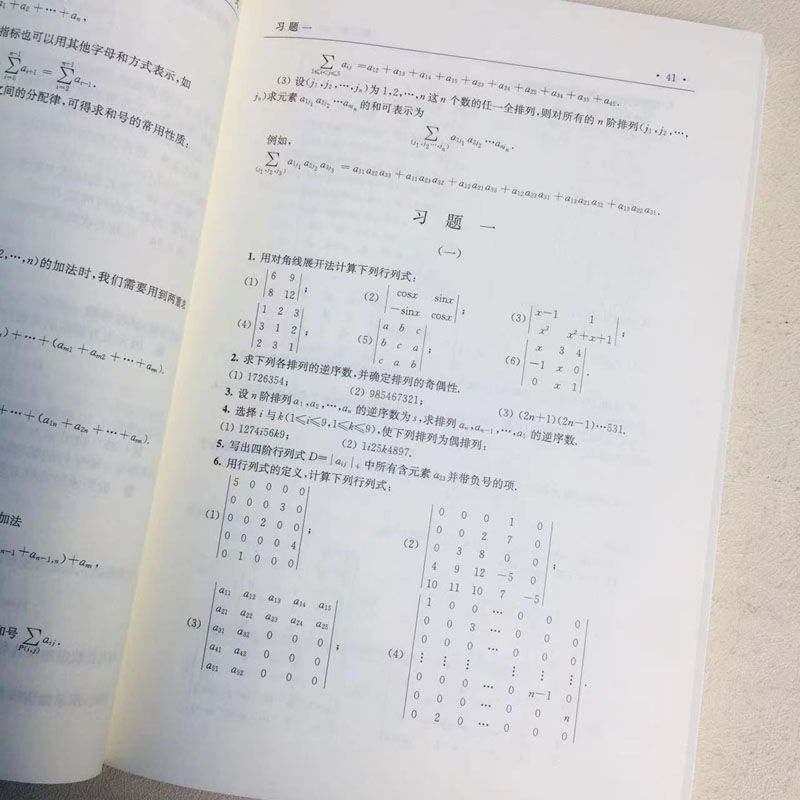 a₁+a₂+⋯+aₙ,
指标也可以用其他字母和方式表示,如
之间的分配律,可得求和号的常用性质:
2,⋯,n)的加法时,我们需要用到两重求
)+⋯+(aₘ₁+aₘ₂+⋯+aₘ).
)+⋯+(a₁ₙ+a₂ₙ+⋯+aₘ).
加法
习题一 · 41 ·
∑_{1≤i<j≤5} a_{ij}=a₁₂+a₁₃+a₁₄+a₁₅+a₂₃+a₂₄+a₂₅+a₃₄+a₃₅+a₄₅.
(3) 设(j₁,j₂,⋯,jₙ)为1,2,⋯,n这n个数的任一全排列,则对所有的n阶排列(j₁,j₂,⋯,
jₙ)求元素a_{1j₁}a_{2j₂}⋯a_{njₙ}的和可表示为
∑_{(j₁,j₂⋯,jₙ)} a_{1j₁}a_{2j₂}⋯a_{njₙ}.
例如,
∑_{(j₁,j₂,j₃)} a_{1j₁}a_{2j₂}a_{3j₃}=a₁₁a₂₂a₃₃+a₁₁a₂₃a₃₂+a₁₂a₂₁a₃₃+a₁₂a₂₃a₃₁+a₁₃a₂₁a₃₂+a₁₃a₂₂a₃₁.
习 题 一
(一)
1. 用对角线展开法计算下列行列式:
(1) |6 9; 8 12|; (2) |cosx sinx; −sinx cosx|; (3) |x−1 1; x² x²+x+1|;
(4) |1 2 3; 3 1 2; 2 3 1|; (5) |a b c; b c a; c a b|; (6) |x 3 4; −1 x 0; 0 x 1|.
2. 求下列各排列的逆序数,并确定排列的奇偶性.
(1) 1726354; (2) 985467321; (3) (2n+1)(2n−1)⋯531.
3. 设n阶排列a₁,a₂,⋯,aₙ的逆序数为s,求排列aₙ,aₙ₋₁,⋯,a₁的逆序数.
4. 选择i与k(1≤i≤9,1≤k≤9),使下列排列为偶排列:
(1) 1274i56k9; (2) 1i25k4897.
5. 写出四阶行列式D=|a_{ij}|₄中所有含元素a₂₃并带负号的项.
6. 用行列式的定义,计算下列行列式:
(1) |5 0 0 0 0; 0 0 0 3 0; 0 0 2 0 0; 0 0 0 0 4; 0 1 0 0 0|; (2) |0 0 0 1 0; 0 0 2 7 0; 0 3 8 0 0; 4 9 12 −5 0; 10 11 10 7 −5|;
(3) |a₁₁ a₁₂ a₁₃ a₁₄ a₁₅; a₂₁ a₂₂ a₂₃ a₂₄ a₂₅; a₃₁ a₃₂ 0 0 0; a₄₁ a₄₂ 0 0 0; a₅₁ a₅₂ 0 0 0|; (4) |1 0 0 ⋯ 0 0 0; 0 0 3 ⋯ 0 0 0; 0 0 0 ⋯ 0 0 0; ⋮ ⋮ ⋮ ⋮ ⋮ ⋮; 0 0 0 ⋯ 0 n−1 0; 0 0 0 ⋯ 0 0 n; 0 2 0 ⋯ 0 0 0|.